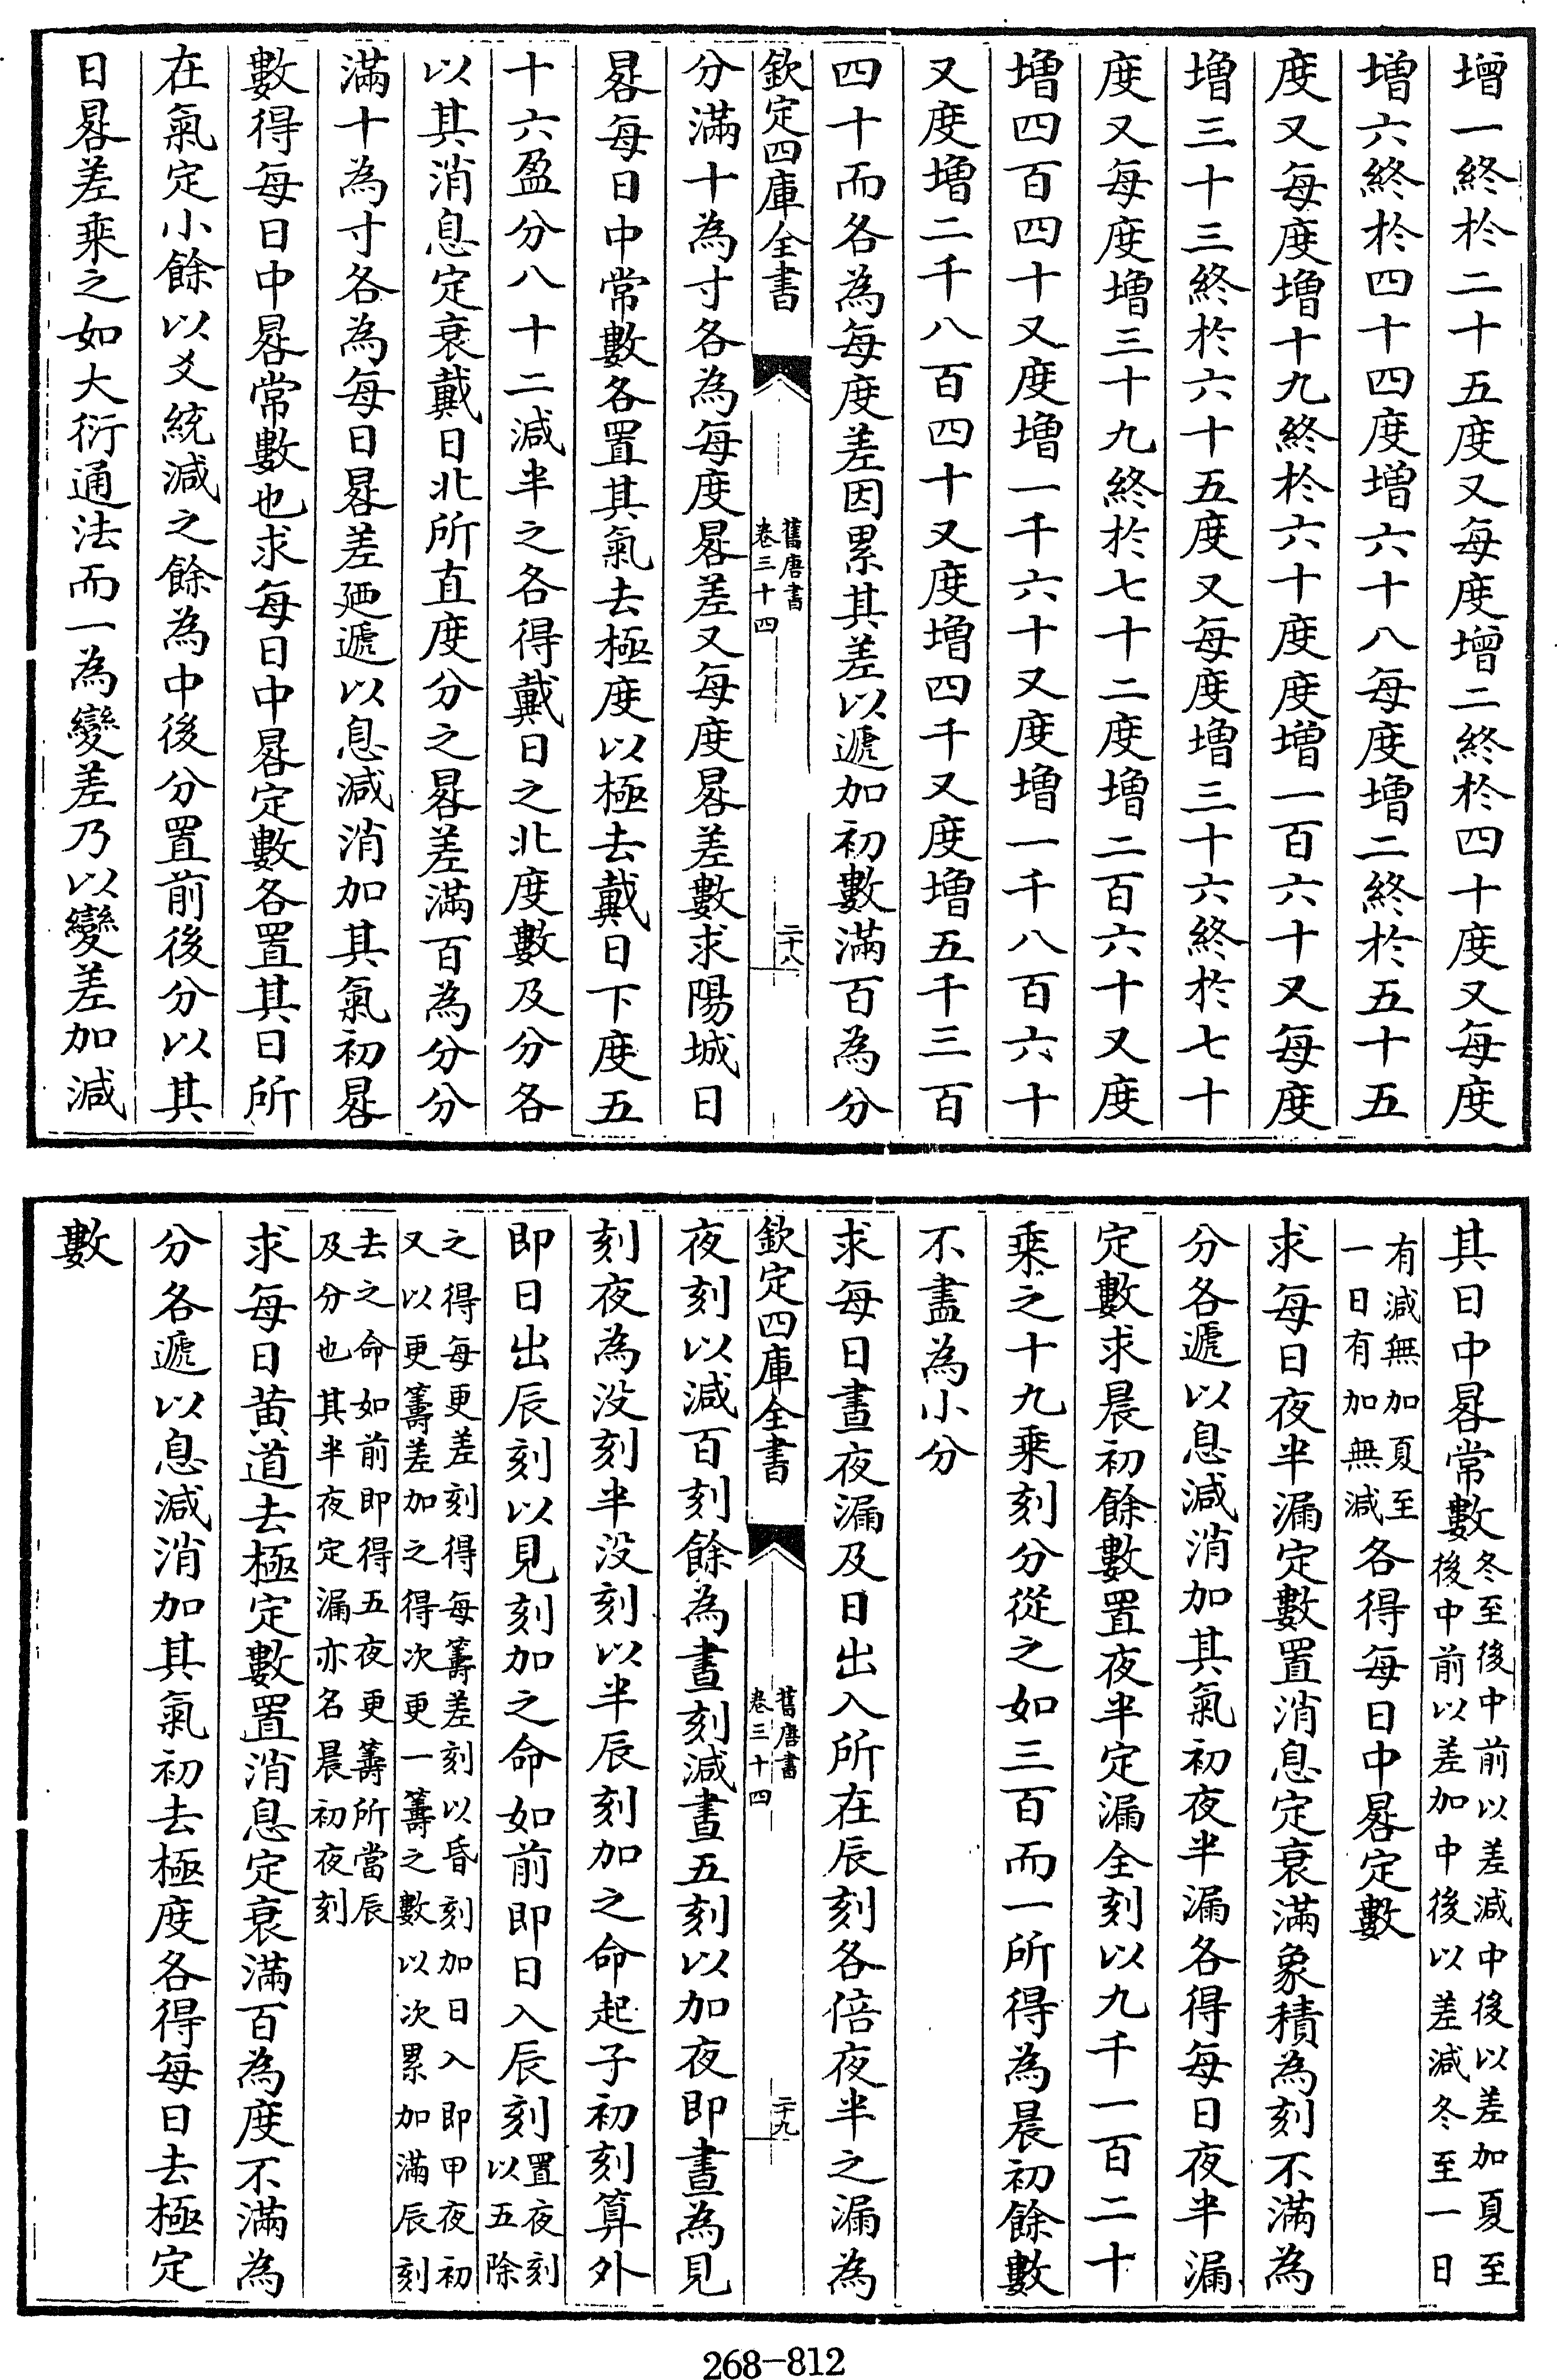 增一終於二十五度又每度增二終於四十度又每度
增六終於四十四度增六十八每度增二終於五十五
度又每度增十九終於六十度度增一百六十又每度
增三十三終於六十五度又每度增三十六終於七十
度又每度增三十九終於七十二度增二百六十又度
增四百四十又度增一千六十又度增一千八百六十
又度增二千八百四十又度增四千又度增五千三百
四十而各為每度差因累其差以遞加初數滿百為分
欽定四庫全書
舊唐書
卷三十四
二十八
分滿十為寸各為每度晷差又每度晷差數求陽城日
晷每日中常數各置其氣去極度以極去戴日下度五
十六盈分八十二減半之各得戴日之北度數及分各
以其消息定衰戴日北所直度分之晷差滿百為分分
滿十為寸各為每日晷差廼遞以息減消加其氣初晷
數得每日中晷常數也求每日中晷定數各置其日所
在氣定小餘以爻統減之餘為中後分置前後分以其
日晷差乗之如大衍通法而一為變差乃以變差加減
其日中晷常數冬至後中前以差減中後以差加夏至
後中前以差加中後以差減冬至一日
有減無加夏至
一日有加無減各得每日中晷定數
求每日夜半漏定數置消息定衰滿象積為刻不滿為
分各遞以息減消加其氣初夜半漏各得每日夜半漏
定數求晨初餘數置夜半定漏全刻以九千一百二十
乗之十九乗刻分從之如三百而一所得為晨初餘數
不盡為小分
求每日晝夜漏及日出入所在辰刻各倍夜半之漏為
欽定四庫全書
舊唐書
卷三十四
二十九
夜刻以減百刻餘為晝刻減晝五刻以加夜即晝為見
刻夜為没刻半没刻以半辰刻加之命起子初刻算外
即日出辰刻以見刻加之命如前即日入辰刻置夜刻
以五除
之得每更差刻得每籌差刻以昏刻加日入即甲夜初
又以更籌差加之得次更一籌之數以次累加滿辰刻
去之命如前即得五夜更籌所當辰
及分也其半夜定漏亦名晨初夜刻
求每日黄道去極定數置消息定衰滿百為度不滿為
分各遞以息減消加其氣初去極度各得每日去極定
數
268-812